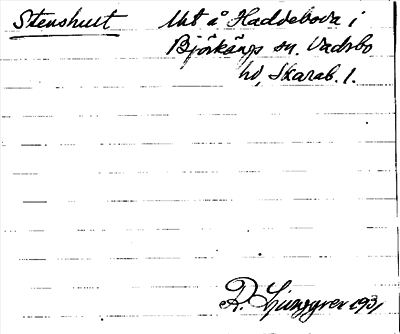 Stenshult Ut å Haddeboda i
Björkängs sn. Vadsbo
hd, Skarab. l.
R. Ljunggren 1931